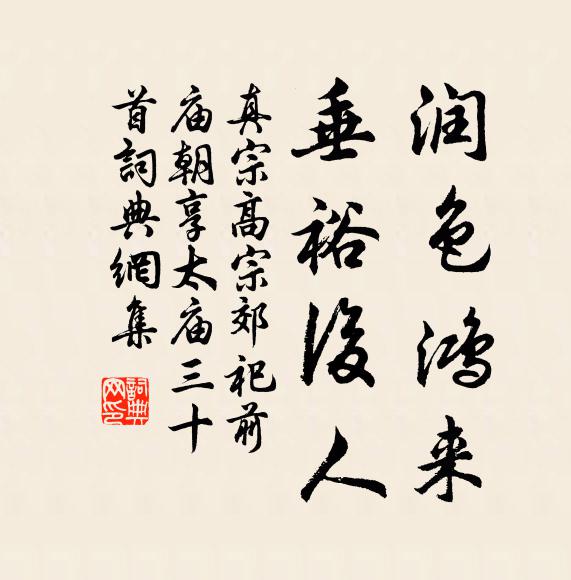 润色鸿来
垂裕後人
真宗高宗郊祀前
庙朝享太庙三十
首詞典網集
詞典网印